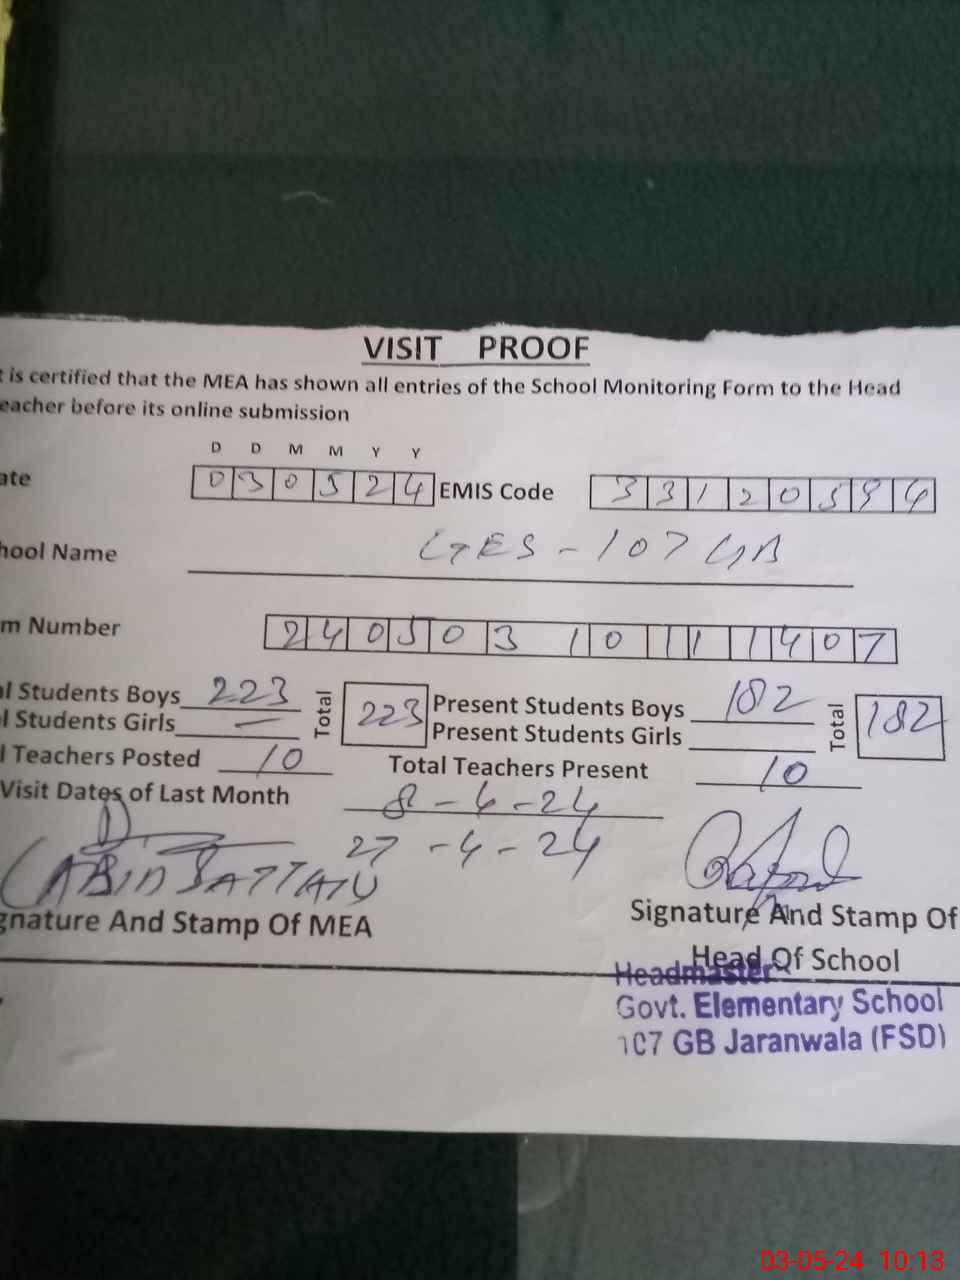 VISIT PROOF
t is certified that the MEA has shown all entries of the School Monitoring Form to the Head
eacher before its online submission
D D M M Y Y
ate 030524 EMIS Code 33120594
hool Name GES - 107 GB
m Number 24050310111407
l Students Boys 223 Total 223 Present Students Boys 182 Total 182
l Students Girls — Present Students Girls
l Teachers Posted 10 Total Teachers Present 10
Visit Dates of Last Month 8-4-24
27-4-24
gnature And Stamp Of MEA
Signature And Stamp Of
Head Of School
Headmaster
Govt. Elementary School
107 GB Jaranwala (FSD)
03-05-24 10:13